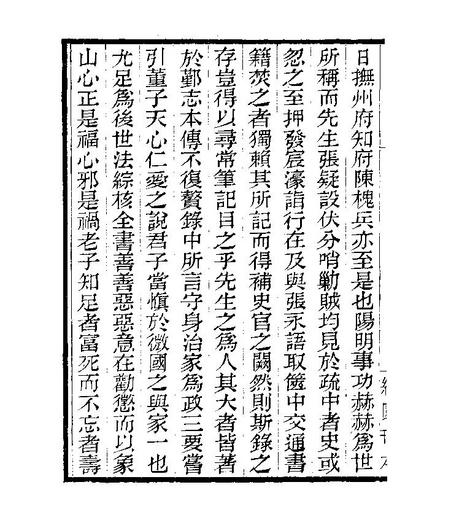 日撫州府知府陳槐兵亦至是也陽明事功赫赫為世
所稱而先生張疑設伏分哨勦賊均見於疏中者史或
忽之至押發宸濠詣行在及與張永語取篋中交通書
籍焚之者獨賴其所記而得補史官之闕然則斯錄之
存豈得以尋常筆記目之乎先生之為人其大者皆著
於鄞志本傳不復贅錄中所言守身治家為政三要嘗
引董子天心仁愛之說君子當愼於微國之與家一也
尤足為後世法綜核全書善善惡惡意在勸懲而以象
山心正是福心邪是禍老子知足者富死而不忘者壽